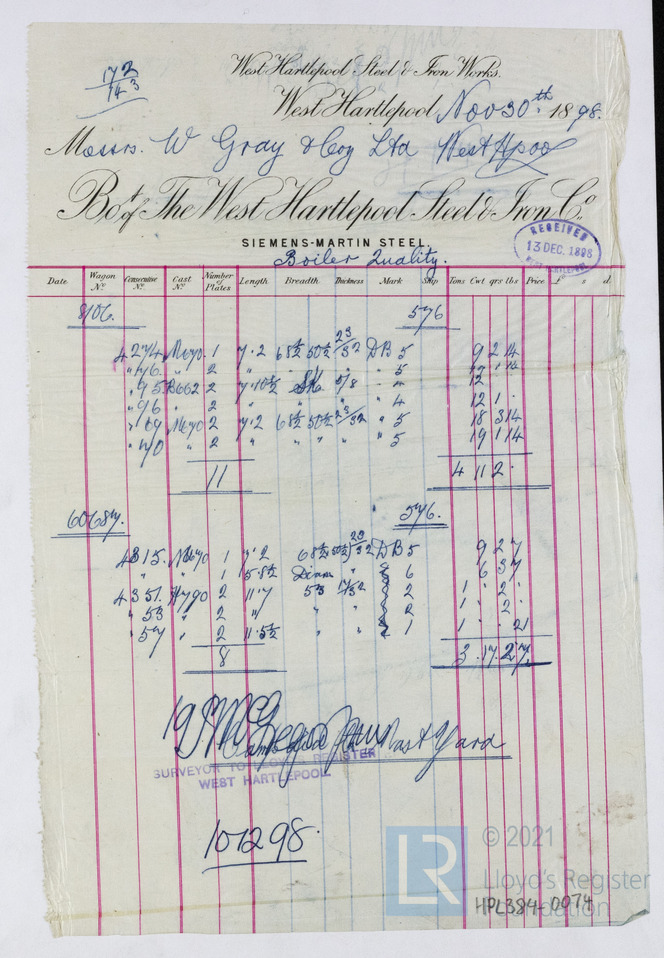 172
143
West Hartlepool Steel & Iron Works.
West Hartlepool Nov 30th 1898.
Messrs. W Gray & Coy Ltd West Hpool
Bot of The West Hartlepool Steel & Iron Co.
SIEMENS-MARTIN STEEL.
Boiler Quality.
RECEIVED
13 DEC. 1898
WEST HARTLEPOOL
Date Wagon No. Consecutive No. Cast No. Number of Plates Length Breadth Thickness Mark Ship Tons Cwt qrs lbs Price £ s d
8106. 576
4274 1 7.2 68½ 50½ 23/32 DB 5 9 2 14
" 176 " 2 " " 5
" 95 2 7.10½ 5/8 " 4 12
" 96 " 2 " 4 12 1 .
" 169 2 7.2 68½ 50½ 23/32 " 5 18 3 14
" 170 " 2 " " " " 5 19 1 14
11 4 11 2 .
60687. 576.
4315. 1 7.2 68½ 50½ 23/32 DB 5 9 2 7
" " 1 5.8½ Diam 6 6 3 7
4351. 2 11.7 53 17/32 2 1 . 2 .
" 53 " 2 " " " 2 1 . 2 .
" 57 " 2 11.5½ " " 1 1 . . 21
8 3 .17. 2 7.
19 East Yard
SURVEYOR TO LLOYD'S REGISTER
WEST HARTLEPOOL
101298.
LR
© 2021
Lloyd's Register
Foundation
HPL384-0074